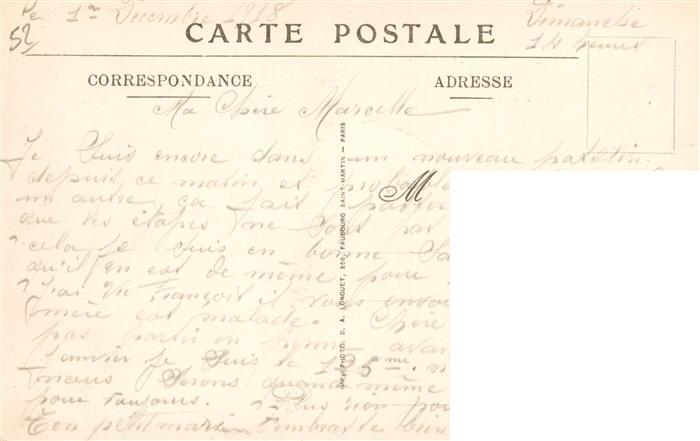 Le 1er Decembre 1918
Dimanche
52
14 heures
CARTE POSTALE
CORRESPONDANCE
ADRESSE
Ma Chère Marcelle
Je suis encore dans un nouveau patelin
depuis ce matin, et
un autre, ça fait
que les étapes ne sont pas
cela je suis en bonne
qu'il en est de même pour
J'ai vu François il vous
mère est malade. Chère
pas avan
Janvier je suis le 125ème
nous serons quand même
pour toujours. Plus rien pour
Ton petit mari t'embrasse bien
M
IMP. PHOTO. D. A. LONGUET, 250, FAUBOURG SAINT-MARTIN — PARIS